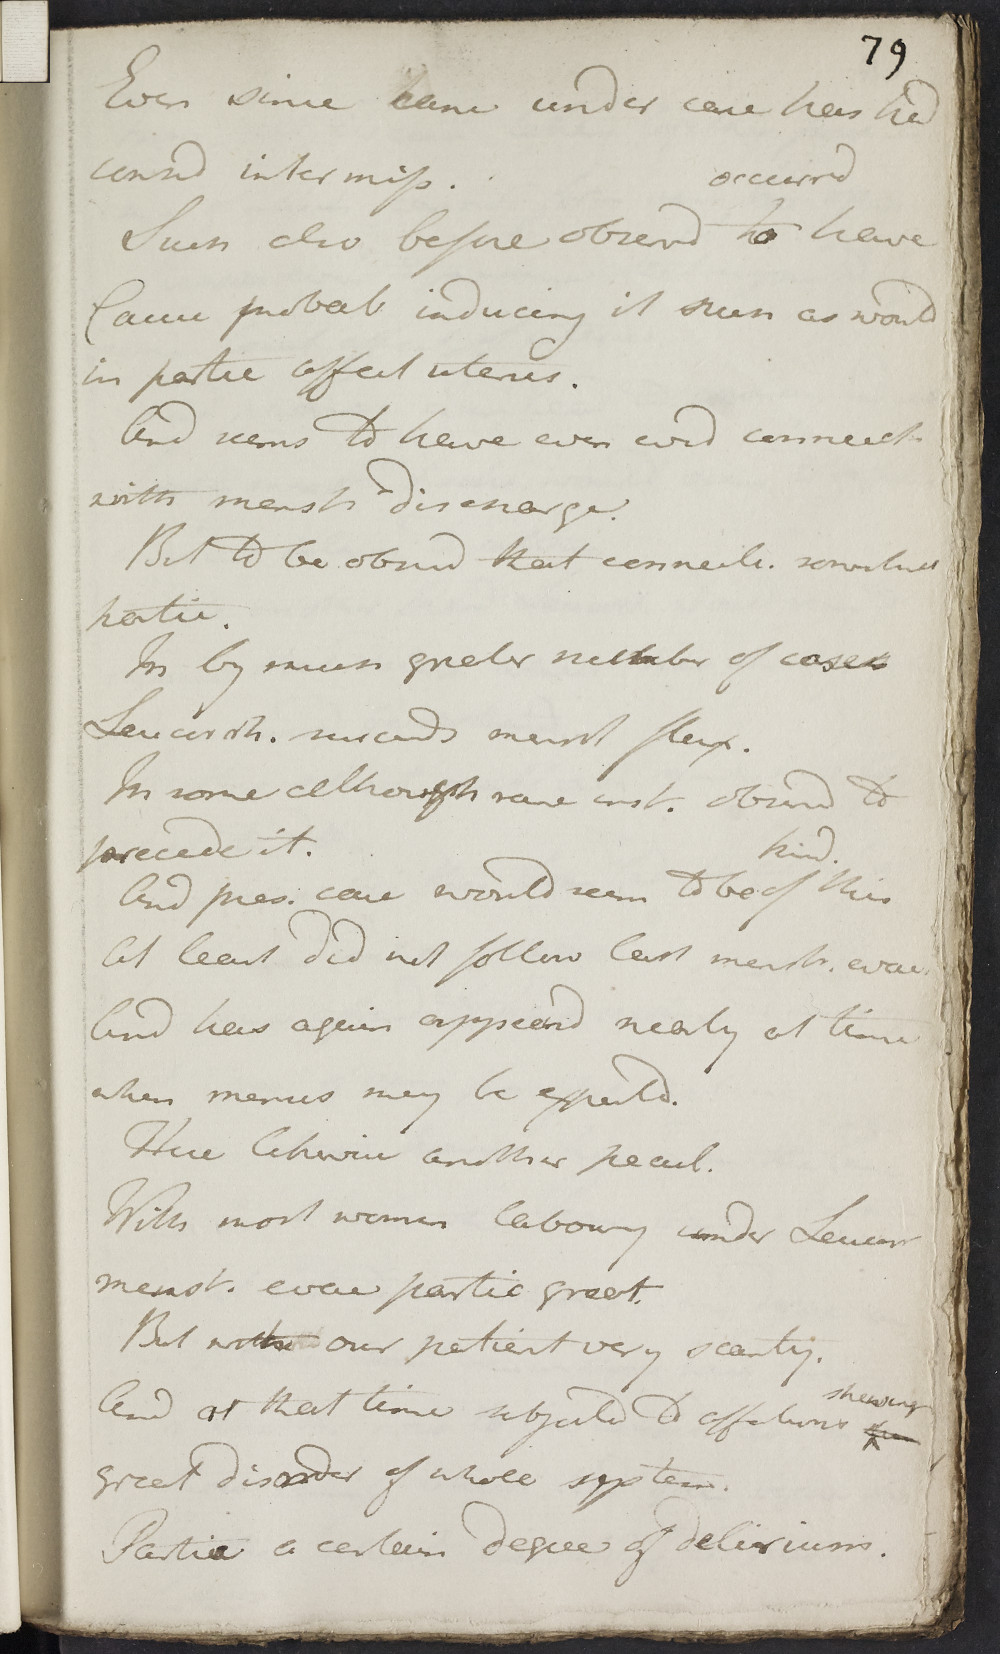 79
Ever since came under care has had
consid intermiss.
occurrd
Such also before observd to have
Cause probab inducing it such as would
in partic affect uterus.
And seems to have even evid connect
with menst discharge.
But to be obsrvd that connect. somewhat
partic.
In by much greater number of cases
Leucorrh. succeeds menst flux.
In some although rare inst. obsrvd to
precede it.
kind.
And pres. case would seem to be of this
At least did not follow last menst. evac
And has again appeard nearly at time
when menses may be expectd.
Here likewise another pecul.
With most women labourg under Leucorr
menst. evac partic great.
But with our patient very scanty.
shewing
And at that time subjectd to affections
great disorder of whole system.
Partic a certain degree of delirium.